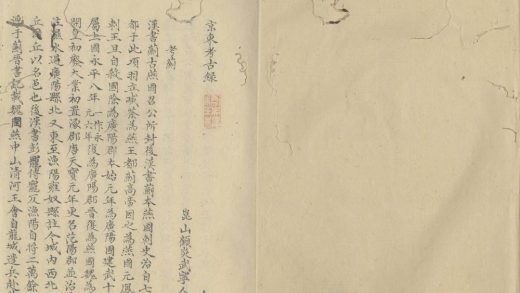 京東考古錄
崑山顧炎武寧人
考薊
漢書薊古燕國召公所封後漢書薊本燕國刺史治自七
都于此項羽立臧荼為燕王都薊高帝因之為燕國元鳳
刺王旦自殺國除為廣陽郡本始元年為廣陽國建武十
屬上國永平八年一作永元六年復為廣陽郡晉復為燕國魏為
開皇初廢大業初置涿郡唐天寶元年更名范陽郡並治
水逕廣陽縣北又東至漁陽雍奴縣注今城內西北
丘以名邑也後漢書彭寵傳寵反漁陽自將二萬餘
于薊晉書記載魏圍燕中山清河王會自龍城遣兵赴